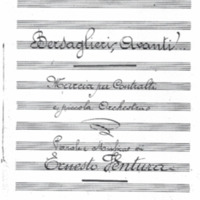 Bersaglieri, Avanti!..
Marcia per Contralti
e piccola Orchestra
Parole e Musica di
Ernesto Ventura